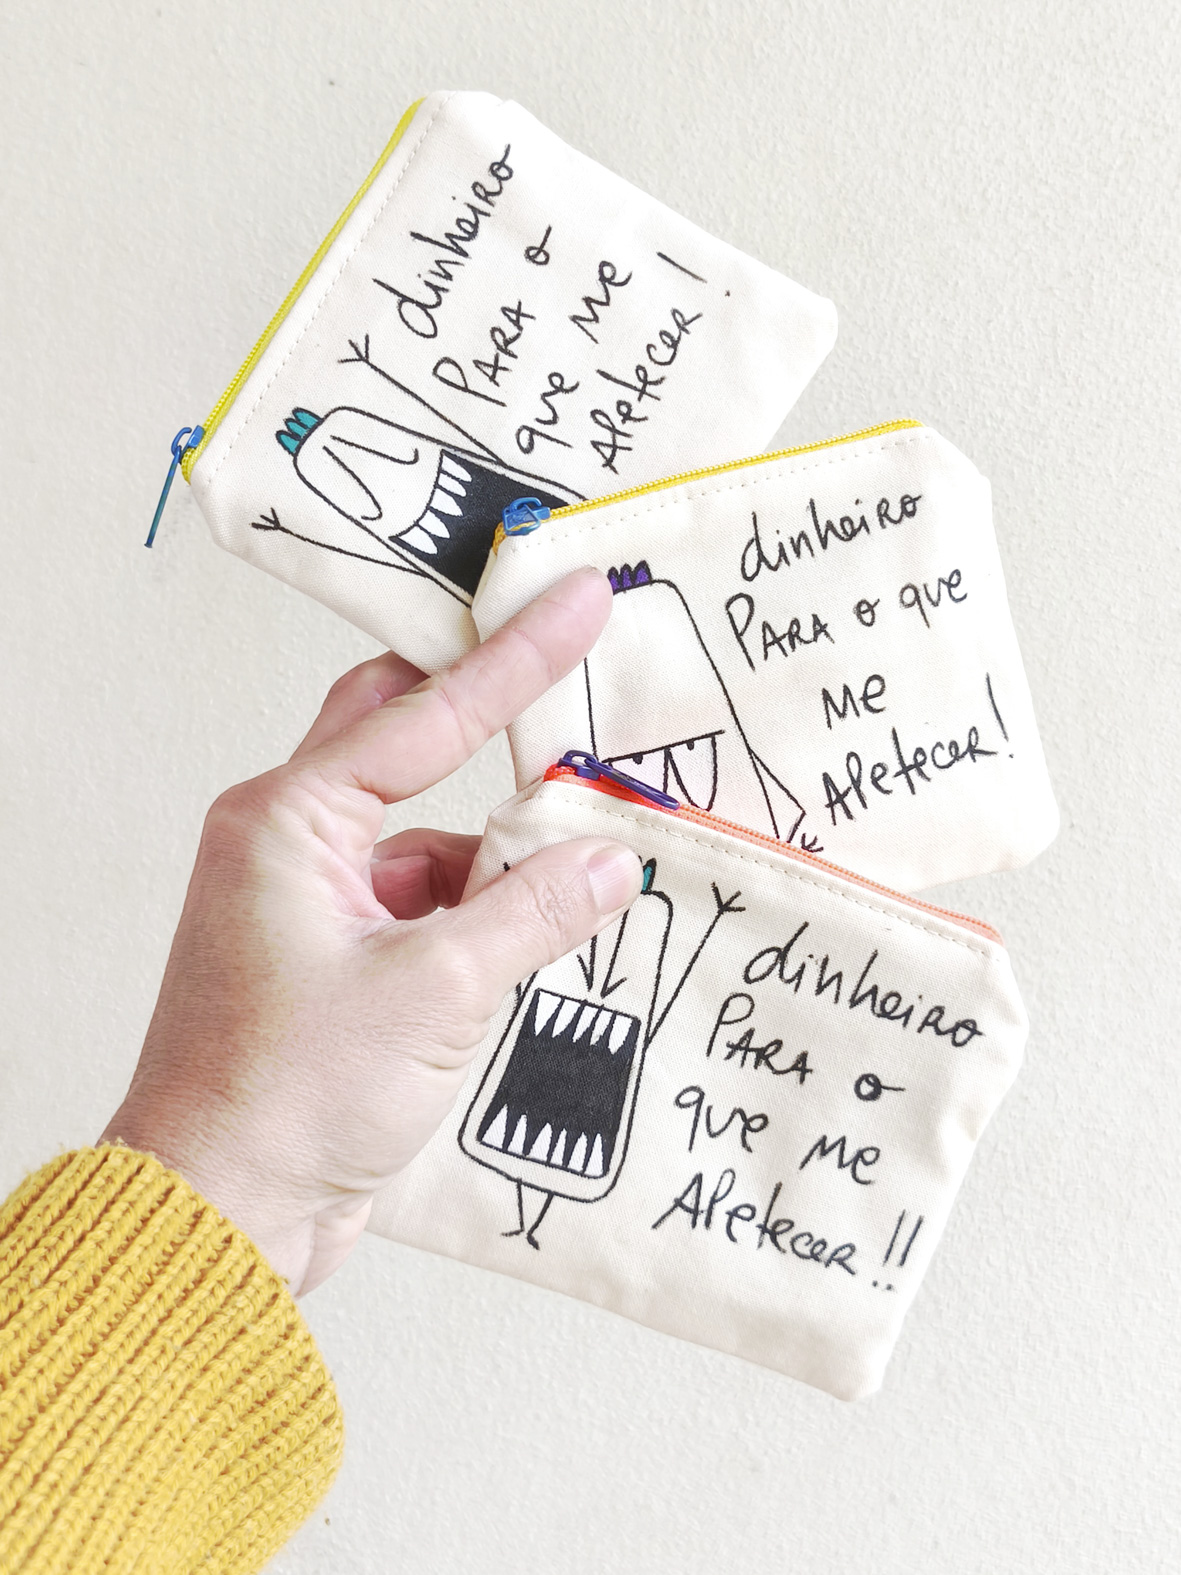 dinheiro
PARA o
que me
Apetecer!
dinheiro
PARA o que
me
Apetecer!
dinheiro
PARA o
que me
Apetecer!!